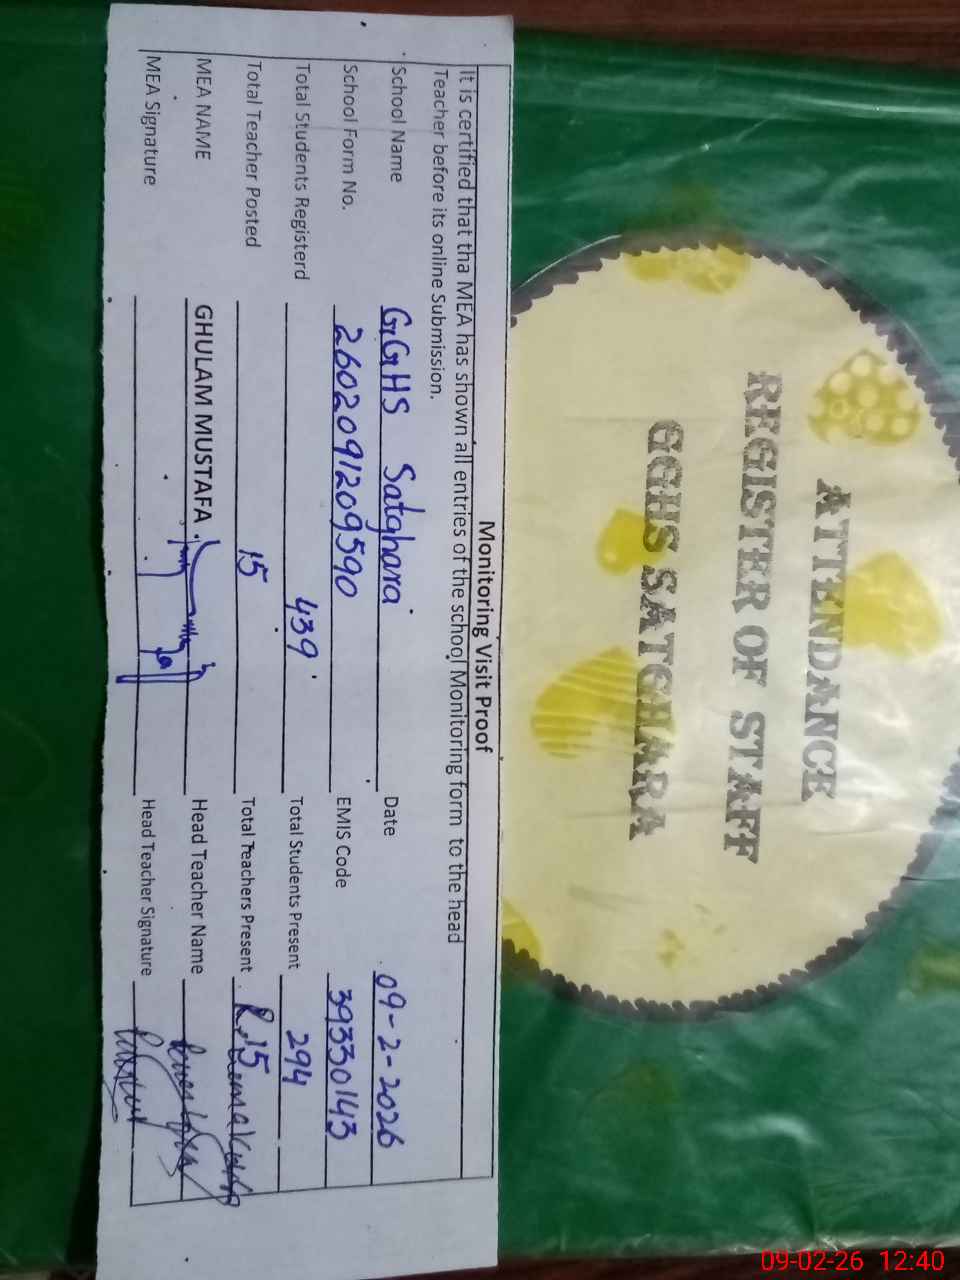 Monitoring Visit Proof
It is certified that tha MEA has shown all entries of the school Monitoring form to the head
Teacher before its online Submission.
School Name GGHS Satghara Date 09-2-2026
School Form No. 2602091209590 EMIS Code 39330143
Total Students Registerd 439 Total Students Present 294
Total Teacher Posted 15 Total Teachers Present 15
MEA NAME GHULAM MUSTAFA Head Teacher Name
MEA Signature Head Teacher Signature
ATTENDANCE
REGISTER OF STAFF
GGHS SATGHARA
09-02-26 12:40